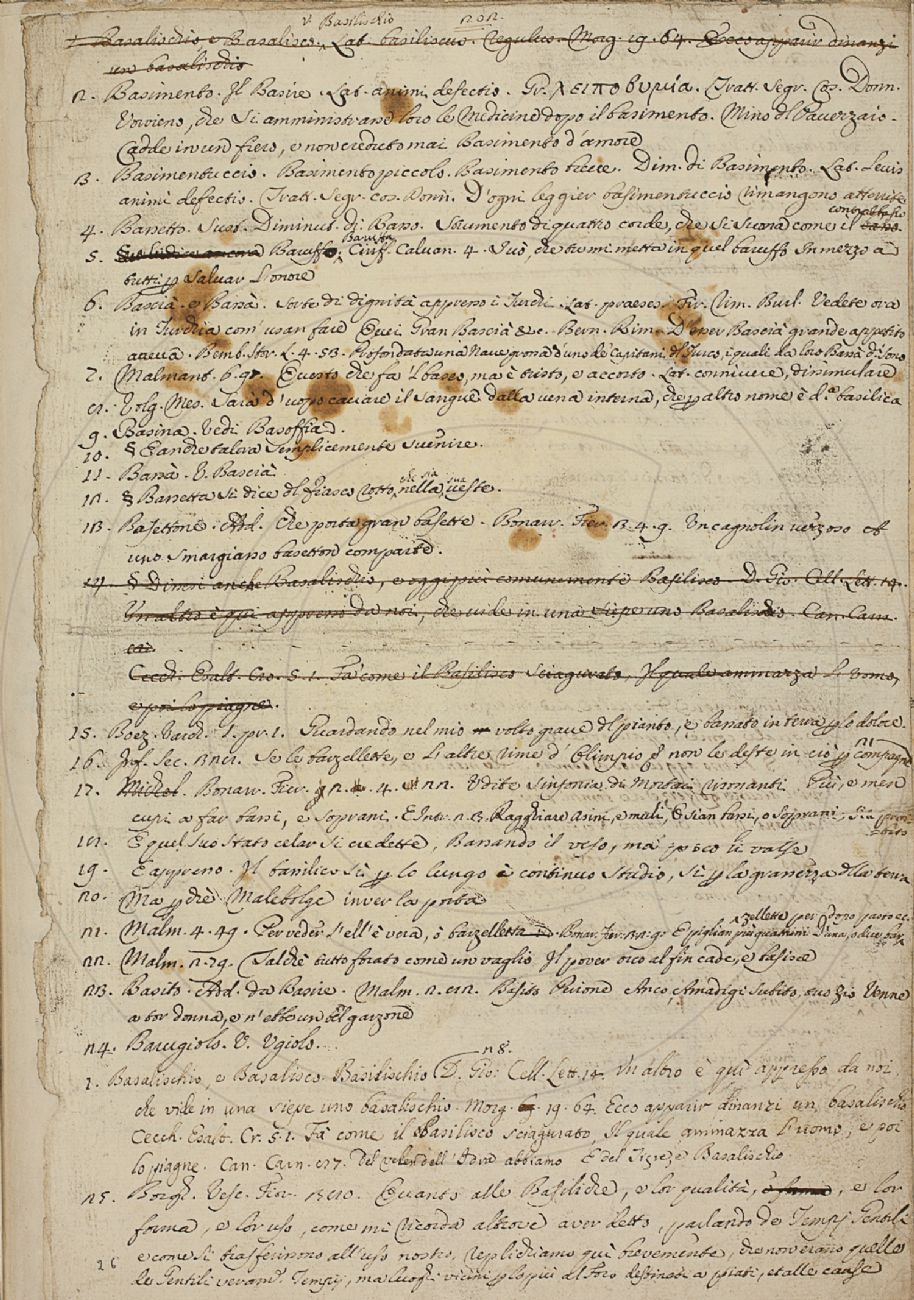 v. Basilischio 202.
1. Basalischio e Basalisco. Lat. basiliscus. Regulus. Morg. 19. 64. Ecco apparir dinanzi
un basalischio
2. Basimento. Il Basire. Lat. animi defectio. Gr. λειποθυμία. Tratt. Segr. Cos. Donn.
che si amministrano loro le Medicine dopo il basimento. Mino
Cadde in un fiero, e non creduto mai Basimento d'amore
3. Basimentuccio. Basimento piccolo. Basimento lieve. Dim. di Basimento. Lat. Levis
animi defectio. Tratt. Segr. cos. Donn. D'ogni leggier basimentuccio rimangono atterrite
contrabasso
4. Bassetto. Sust. Diminut. di Basso. Strumento di quattro corde, che si suona come il basso
5. Baruffa. Ciriff. Calvan. 4. Suo, che tu mi metta in quel baruffo In mezzo a
tutti p salvar L'onore
6. Bascià e Bassà. Sorte di dignità appresso i Turchi. Lat. praeses. Fir. Rim. Burl. Vedete ora
in Turchia com' usan fare Quei Gran Bascià &c. Bern. Rim. D'esser Bascià grande appetito
aveva. Bemb. Stor. L. 4. 53. Profondata una Nave grossa d'uno de' Capitani del Turco, i quali da loro Bassà
7. Malmant. 6. 97. Questo che fa 'l baseo, ma è tristo, e accorto. Lat. connivere, dissimulare
8. Volg. Mes. Sarà d'uopo cavare il sangue dalla vena interna, che p altro nome è d.a basilica
9. Basina. Vedi Basoffia
10. § E anche talora semplicemente svenire.
11. Bassà. V. Bascià
12. § Bassetta si dice del fiasco rotto, che sia nella sua veste.
13. Basettone. Add. Che porta gran basette. Bonarr. Fier. 3. 4. 9. Un cagnolin vezzoso ch'
uno smargiasso basetton comparte.
14. § Dicesi anche Basalischio, e oggi più comunemente Basilisco. D. Gio. Cell. Lett. 14.
Un altro è qui appresso da noi, che vide in una siepe uno Basalischio. Can. Carn.
Cecch. Esalt. Cro. 5. 1. Fa come il Basilisco sciagurato, Il quale ammazza L'uomo,
e poi lo piagne.
15. Boez. Varch. 1. pr. 1. Guardando nel mio volto grave del pianto, e bassato in terra p lo dolore
16. Inf. Sec. 321. Se le barzellette, e L'altre rime d'Olimpio non le deste in ciò p compagne
17. Bonarr. Fier. 2. 4. 22. Udite sinfonia di Mortai risonanti Più, e men
cupi a far bassi, e soprani. E Intr. 2. 3. Ragghiare asini, e muli, E sian bassi, o soprani, Sia
18. E quel suo stato celar si credette, Bassando il viso, ma poco li valse
19. E appresso. Il basilico sì p lo lungo e continuo studio, sì p la grassezza della terra
20. Ma p che Malebolge inver la porta
21. Malm. 4. 49. Per veder s'ell'è vera, o barzelletta. Bonar. Fier. 3. 2. 9. E piglian più quattrini D'una, o due barzellette per dopo pasto ec.
22. Malm. 2. 79. Talchè tutto forato come un vaglio Il pover orco al fin cade, e basisce
23. Basito. Add. da Basire. Malm. 2. 82. Basito Perione Anco, Amadigi subito, suo zio Venne
a tor donna, e n'ebbe un bel garzone
24. Barugiolo. V. Ugiolo.
28.
1. Basalischio, e Basalisco. Basilischio D. Gio. Cell. Lett. 14. Un altro è quì appresso da noi,
che vide in una siepe uno basalischio. Morg. 19. 64. Ecco apparir dinanzi un basalischio
Cecch. Esalt. Cr. 5. 1. Fa come il basilisco sciagurato, Il quale ammazza L'uomo, e poi
lo piagne. Can. Carn. 27. Del velen dell'Idra abbiamo E del Tigre, e Basalischio
25. Borgh. Vesc. Fior. 380. Quanto alle Basiliche, e lor qualità, e lor
forma, e lor uso, come mi ricorda altrove aver detto, parlando de' Tempj Gentili
e come si trasferirono all'uso nostro, replichiamo quì brevemente, che non erano quelle
de' Gentili veram. Tempj, ma luoghi vicini p lo più al Foro destinati a piati, et alle cause
26